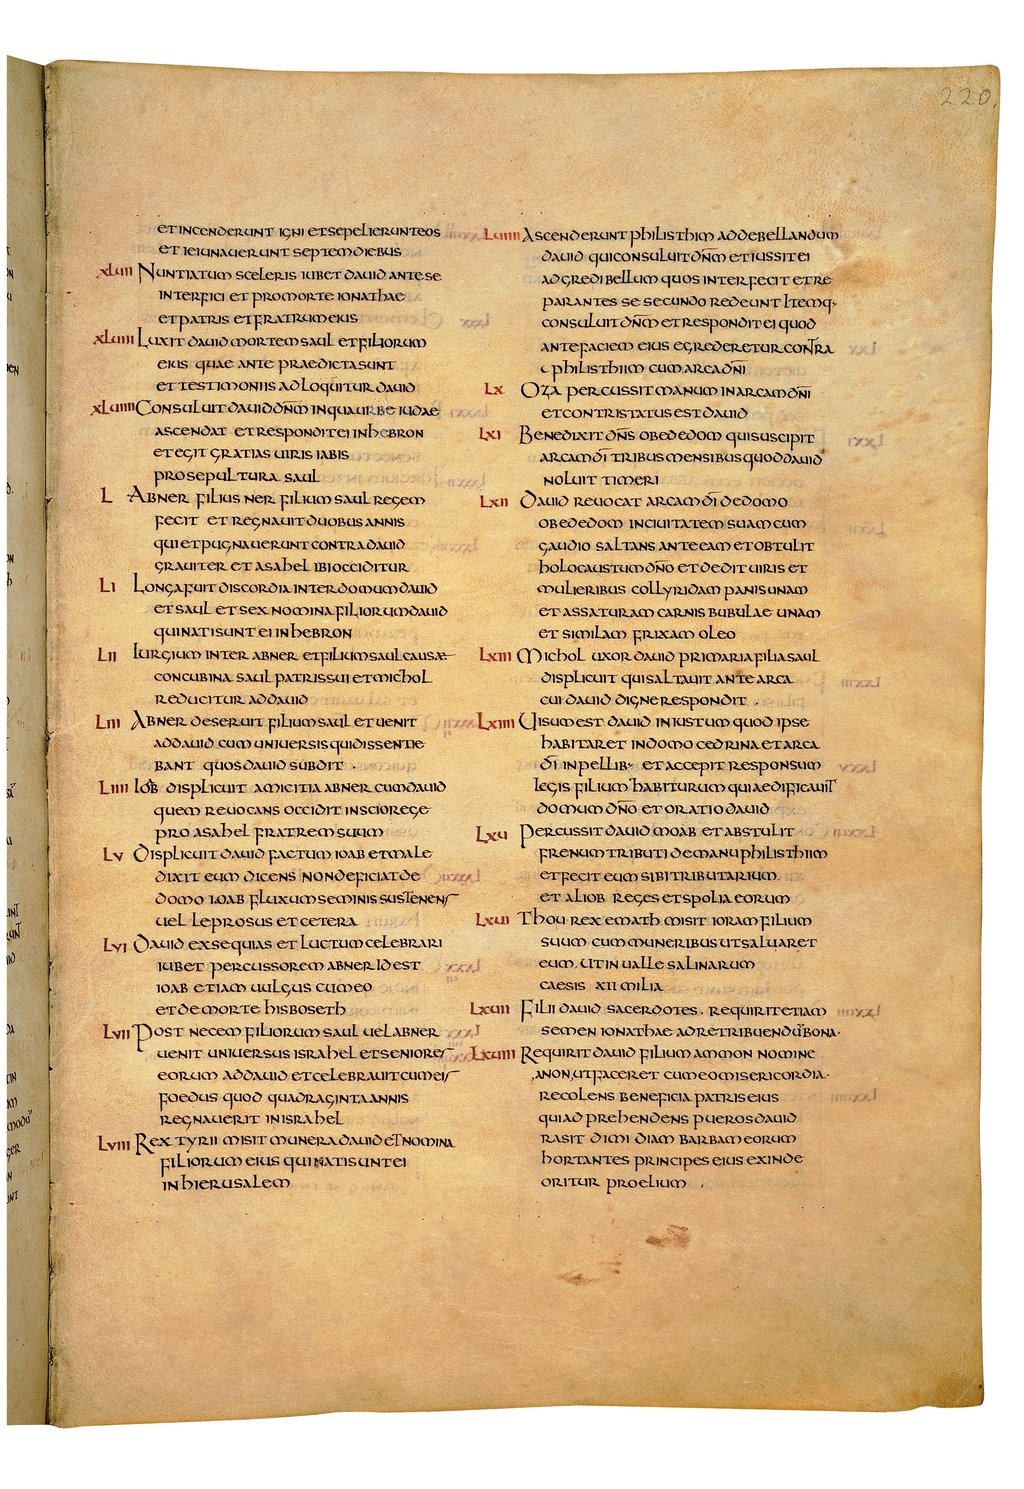 220.
et incenderunt igni et sepelierunt eos
et ieiunauerunt septem diebus
xLuii Nuntiatum sceleris iubet dauid ante se
interfici et pro morte ionathae
et patris et fratrum eius
xLuiii Luxit dauid mortem saul et filiorum
eius quae ante praedicta sunt
et testimoniis adloquitur dauid
xLuiiii Consuluit dauid dñm in qua urbe iudae
ascendat et respondit ei in hebron
et egit gratias uiris iabis
pro sepultura saul
L Abner filius ner filium saul regem
fecit et regnauit duobus annis
qui et pugnauerunt contra dauid
grauiter et asahel ibi occiditur
Li Longa fuit discordia inter domum dauid
et saul et sex nomina filiorum dauid
qui nati sunt ei in hebron
Lii Iurgium inter abner et filium saul causae
concubina saul patris sui et michol
reducitur ad dauid
Liii Abner deseruit filium saul et uenit
ad dauid cum uniuersis qui dissentie
bant quos dauid subdit .
Liiii Iob displicuit amicitia abner cum dauid
quem reuocans occidit inscio rege
pro asahel fratrem suum
Lv Displicuit dauid factum ioab et male
dixit eum dicens non deficiat de
domo ioab fluxum seminis sustenens
uel leprosus et cetera
Lvi Dauid exsequias et luctum celebrari
iubet percussorem abner id est
ioab etiam uulgus cum eo
et de morte hisboseth
Lvii Post necem filiorum saul uel abner
uenit uniuersus israhel et seniores
eorum ad dauid et celebrauit cum eis
foedus quod quadraginta annis
regnauerit in israhel
Lviii Rex tyrii misit munera dauid et nomina
filiorum eius qui nati sunt ei
in hierusalem
Luiiii Ascenderunt philisthim ad debellandum
dauid qui consuluit dñm et iussit ei
adgredi bellum quos interfecit et re
parantes se secundo redeunt itemq·
consuluit dñm et respondit ei quod
ante faciem eius egrederetur contra
philisthiim cum arca dñi
Lx Oza percussit manum in arcam dñi
et contristatus est dauid
Lxi Benedixit dñs obededom qui suscipit
arcam dī tribus mensibus quod dauid
noluit timeri
Lxii Dauid reuocat arcam dī de domo
obededom in ciuitatem suam cum
gaudio saltans ante eam et obtulit
holocaustum dño et dedit uiris et
mulieribus collyridam panis unam
et assaturam carnis bubulae unam
et similam frixam oleo
Lxiii Michol uxor dauid primaria filia saul
displicuit qui saltauit ante arca
cui dauid digne respondit .
Lxiiii Uisum est dauid iniustum quod ipse
habitaret in domo cedrina et arca
dī in pellib· et accepit responsum
legis filium habiturum qui aedificauit
domum dño et oratio dauid
Lxu Percussit dauid moab et abstulit
frenum tributi de manu philisthiim
et fecit eum sibi tributarium.
et alios reges et spolia eorum
Lxui Thou rex emath misit ioram filium
suum cum muneribus ut saluaret
eum. ut in ualle salinarum
caesis xii milia
Lxuii Filii dauid sacerdotes. requirit etiam
semen ionathae ad retribuendū bona·
Lxuiii Requirit dauid filium ammon nomine
anon, ut faceret cum eo misericordia·
recolens beneficia patris eius
qui adprehendens pueros dauid
rasit dimidiam barbam eorum
hortantes principes eius exinde
oritur proelium .